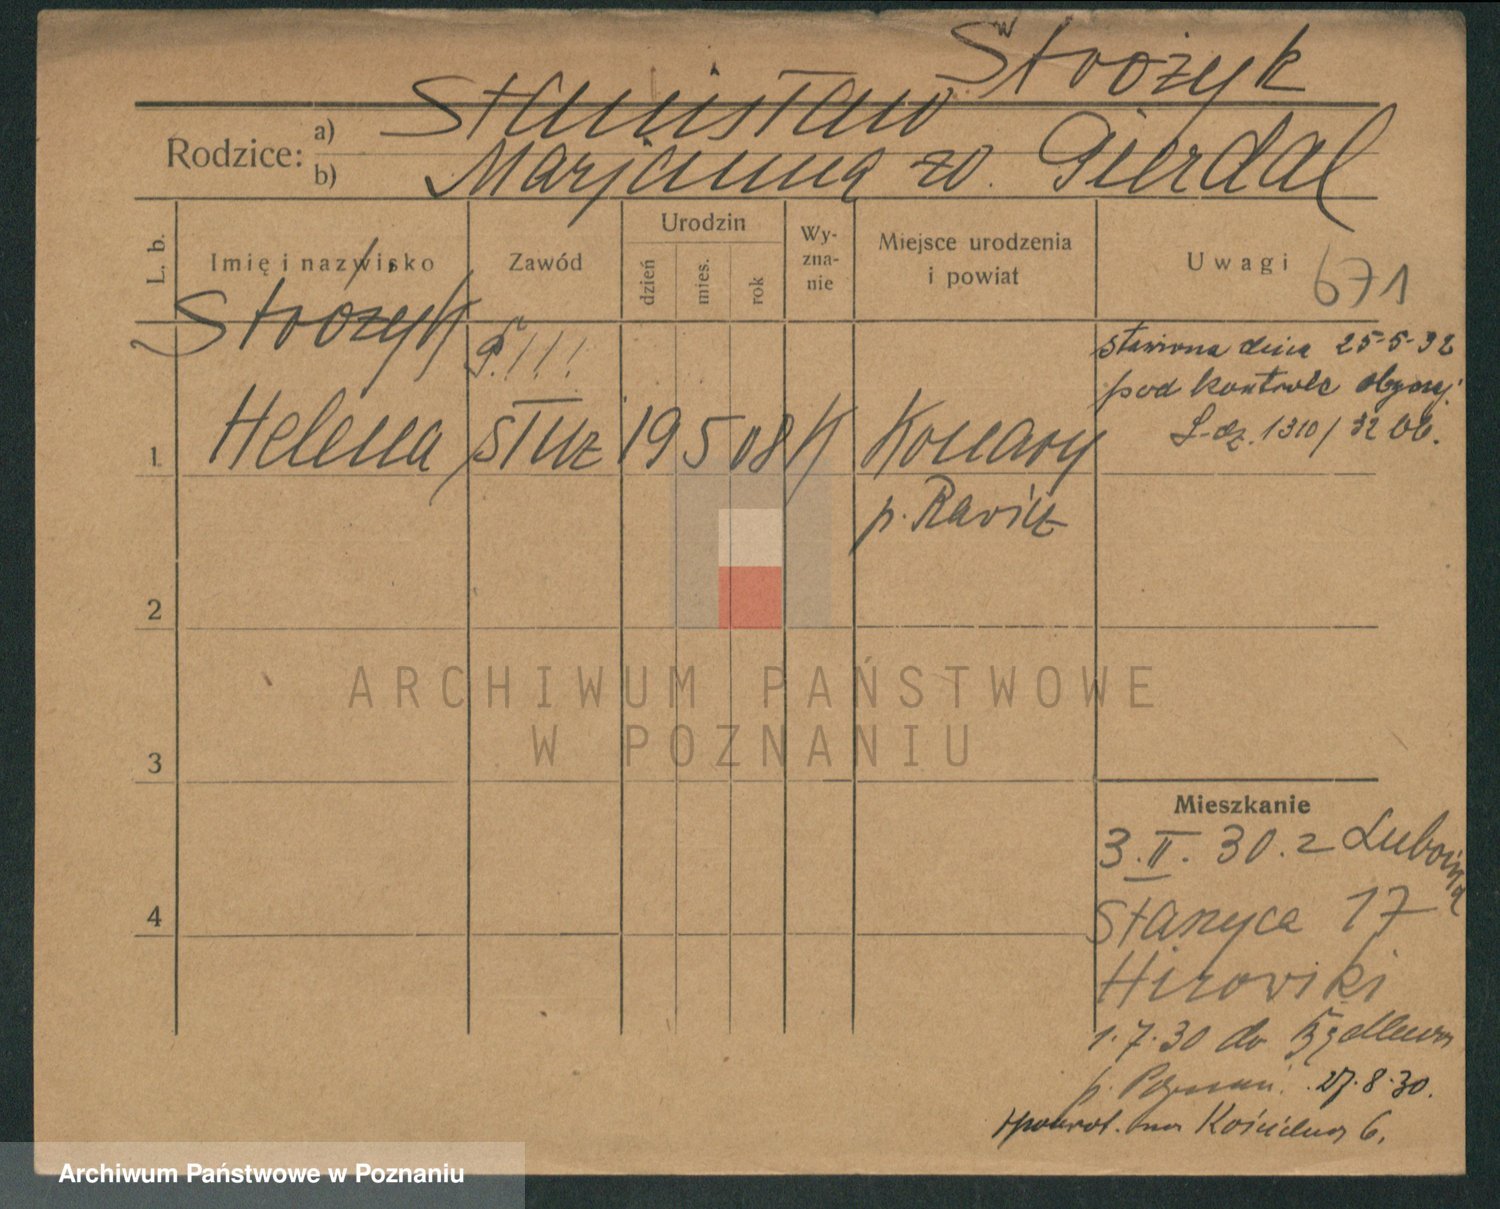 Strożyk
Rodzice: a) Stanisław
b) Marjanna zd. Gierdal
L. b.
Imię i nazwisko
Zawód
Urodzin
dzień
mies.
rok
Wy-
zna-
nie
Miejsce urodzenia
i powiat
Uwagi
671
Strożyk
1 Helena służ 19 5 08 K Konary
p. Rawicz
stawiona dnia 25-5-32
pod kontrolę obyczaj.
L. dz. 1310/32 Ob.
2
3
4
Mieszkanie
3.II.30. z Lubonia
Staszyca 17
1.7.30 do
p. Poznań. 27.8.30.
spowrot. na Kościelna 6.
ARCHIWUM PAŃSTWOWE
W POZNANIU
Archiwum Państwowe w Poznaniu